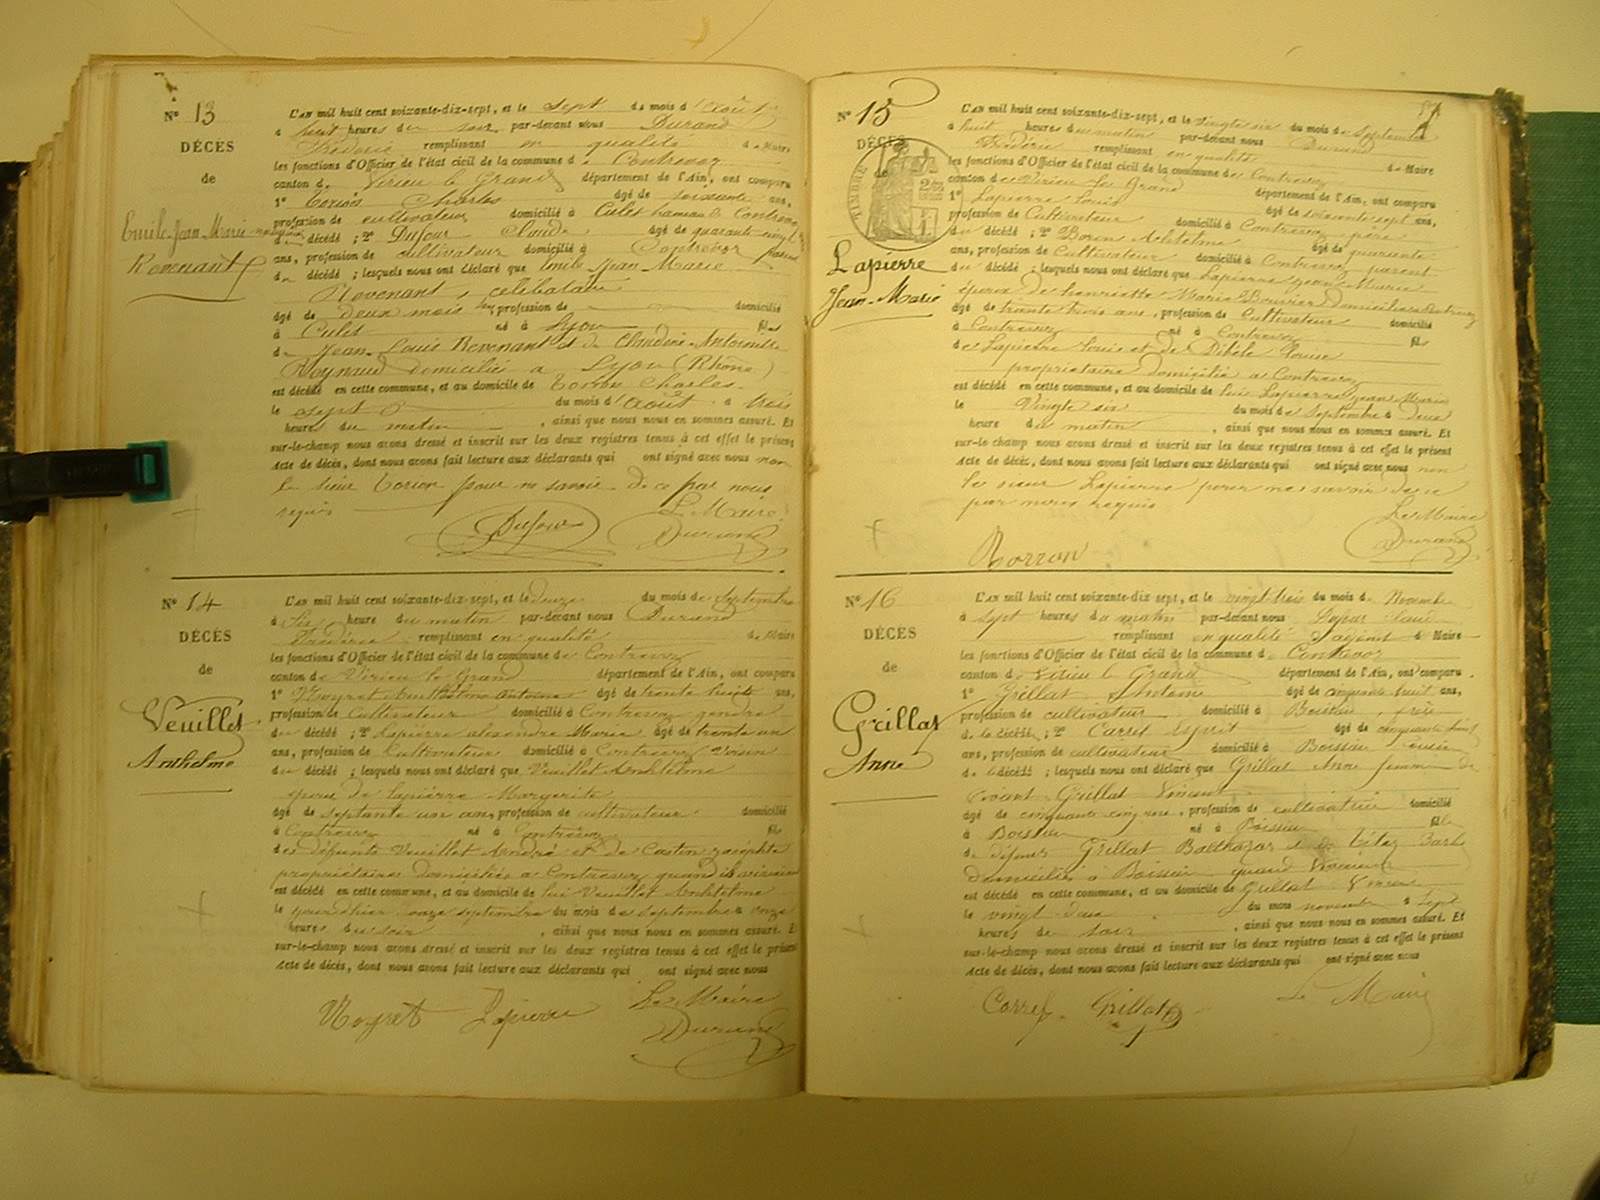 N° 13
DÉCÈS
de
Emile-Jean-Marie
Revenant
L'AN mil huit cent soixante-dix-sept, et le sept du mois d'Août
à huit heures du soir par-devant nous Durand
Fréderic remplissant en qualité de Maire
les fonctions d'Officier de l'état civil de la commune de Contrevoz
canton de Virieu le Grand département de l'Ain, ont comparu
1° Charles âgé de soixante ans,
profession de cultivateur domicilié à Culet hameau de Contrevoz
du décédé ; 2° Dufour Claude âgé de quarante-cinq
ans, profession de cultivateur domicilié à Contrevoz
du décédé ; lesquels nous ont déclaré que Emile Jean Marie
Revenant, célébataire
âgé de deux mois profession de domicilié
à Culet né à Lyon fils
de Jean-Louis Revenant et de Claudine-Antoinette
Reynaud domiciliés à Lyon (Rhône)
est décédé en cette commune, et au domicile de Charles
le sept du mois d'Août à trois
heures du matin, ainsi que nous nous en sommes assuré. Et
sur-le-champ nous avons dressé et inscrit sur les deux registres tenus à cet effet le présent
Acte de décès, dont nous avons fait lecture aux déclarants qui ont signé avec nous non
le sieur pour ne savoir de ce par nous
requis Le Maire
Dufour Durand
N° 14
DÉCÈS
de
Veuillet
Anthelme
L'AN mil huit cent soixante-dix-sept, et le douze du mois de Septembre
à six heure du matin par-devant nous Durand
Fréderic remplissant en qualité de Maire
les fonctions d'Officier de l'état civil de la commune de Contrevoz
canton de Virieu le Grand département de l'Ain, ont comparu
1° Anthelme Antoine âgé de trente huit ans,
profession de Cultivateur domicilié à Contrevoz gendre
du décédé ; 2° Lapierre alexandre Marie âgé de trente un
ans, profession de Cultivateur domicilié à Contrevoz Voisin
du décédé ; lesquels nous ont déclaré que Veuillet Anthelme
époux de Lapierre Margerite
âgé de septante un ans, profession de cultivateur domicilié
à Contrevoz né à Contrevoz fils
des défunts Veuillet André et de Castin
propriétaires domiciliés à Contrevoz quand ils vivaient
est décédé en cette commune, et au domicile de lui Veuillet Anthelme
le jour d'hier onze septembre du mois de septembre à onze
heures du soir, ainsi que nous nous en sommes assuré. Et
sur-le-champ nous avons dressé et inscrit sur les deux registres tenus à cet effet le présent
Acte de décès, dont nous avons fait lecture aux déclarants qui ont signé avec nous
Lapierre Le Maire
Durand
N° 15
DÉCÈS
de
TIMBRE
Lapierre
Jean-Marie
L'AN mil huit cent soixante-dix-sept, et le vingte six du mois de Septembre
à huit heures du matin par-devant nous Durand
Fréderic remplissant en qualité de Maire
les fonctions d'Officier de l'état civil de la commune de Contrevoz
canton de Virieu Le Grand département de l'Ain, ont comparu
1° Lapierre Louis âgé de soixante sept ans,
profession de Cultivateur domicilié à Contrevoz père
du décédé ; 2° Anthelme âgé de quarante
ans, profession de Cultivateur domicilié à Contrevoz parent
du décédé ; lesquels nous ont déclaré que Lapierre Jean Marie
époux de henriette Marie Bouvier Domicilié à Contrevoz
âgé de trente trois ans, profession de Cultivateur domicilié
à Contrevoz né à Contrevoz fils
de Lapierre Louis et de
propriétaire Domiciliés à Contrevoz
est décédé en cette commune, et au domicile de lui Lapierre Jean Marie
le Vingte six du mois de Septembre à deux
heure du matin, ainsi que nous nous en sommes assuré. Et
sur-le-champ nous avons dressé et inscrit sur les deux registres tenus à cet effet le présent
Acte de décès, dont nous avons fait lecture aux déclarants qui ont signé avec nous non
le sieur Lapierre pour ne savoir de ce
par nous requis Le Maire
Borron Durand
N° 16
DÉCÈS
de
Grillat
Anne
L'AN mil huit cent soixante-dix-sept, et le vingt trois du mois de Novembre
à sept heures du matin par-devant nous
remplissant en qualité d'adjoint de Maire
les fonctions d'Officier de l'état civil de la commune de Contrevoz
canton de Virieu le Grand département de l'Ain, ont comparu
1° Grillat Antoine âgé de cinquante huit ans,
profession de cultivateur domicilié à Boissieu frère
de la décédé ; 2° Carrel Esprit âgé de cinquante
ans, profession de cultivateur domicilié à Boissieu cousin
de la décédé ; lesquels nous ont déclaré que Grillat Anne femme de
vivant Grillat Vincent
âgé de cinquante cinq ans, profession de cultivatrice domicilié
à Boissieu né à Boissieu fille
de défunt Grillat Balthazar et de
Domiciliés à Boissieu quand vivaient
est décédé en cette commune, et au domicile de Grillat Vincent
le vingt deux du mois novembre à sept
heures du soir, ainsi que nous nous en sommes assuré. Et
sur-le-champ nous avons dressé et inscrit sur les deux registres tenus à cet effet le présent
Acte de décès, dont nous avons fait lecture aux déclarants qui ont signé avec nous
Carrel Grillat Le Maire